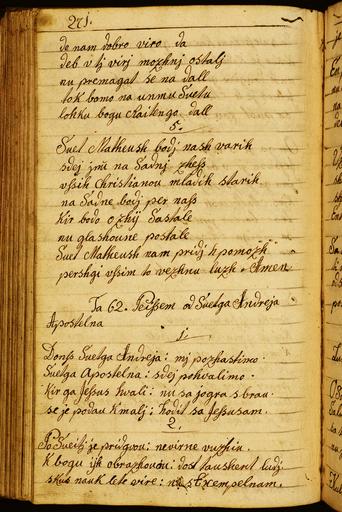 271.
de nam dobro viro da
deb v tj virj mozhnj ostalj
nu premagat se na dall
tok bomo na unmu Svetu
lohku bogu raitengo dall
5.
Svet Matheush bodj nash varih
sdej jnu na Sadnj zhess
vssih Christianou mladih starih
na Sadne bodj per nass
Kir bodo ozhy Sastale
nu glashoune postale
Svet Matheush nam pridj h pomozh
pershgi vssim to vezhnu luzh. Amen
Ta 62. Peissem od Svetga Andreja
Apostelna
1.
Donss Svetga Andreja: mj pozhastimo.
Svetga Apostelna: sdej pohvalimo.
Kir ga Jessus hvali: nu sa jogra sbrau.
se je podau k malj: hodit sa Jessusam.
2.
Po Sveitj je pridgvou: nevirne vuzhiu.
K bogu ijh obrazhouou: dost taushent ludj
skus nauk te le vire: nu s Exempelnam.